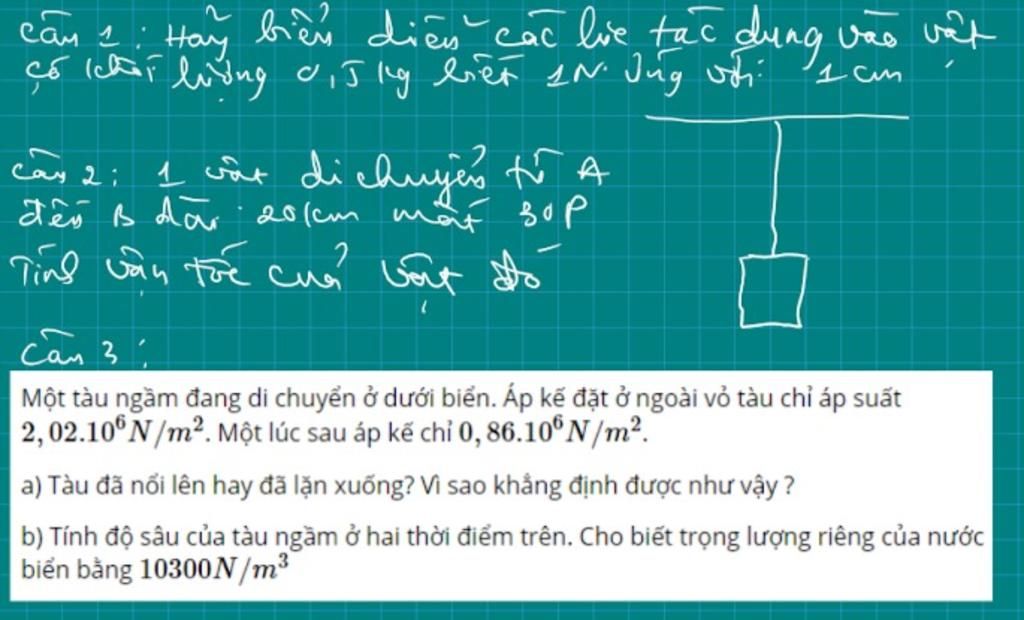 Câu 1: Hãy biểu diễn các lực tác dụng vào vật
có khối lượng 0,5 kg biết 1N ứng với: 1cm
Câu 2: 1 vật di chuyển từ A
đến B dài 20km mất 30P
Tính vận tốc của vật đó
Câu 3:
Một tàu ngầm đang di chuyển ở dưới biển. Áp kế đặt ở ngoài vỏ tàu chỉ áp suất
2,02.10⁶N/m². Một lúc sau áp kế chỉ 0,86.10⁶N/m².
a) Tàu đã nổi lên hay đã lặn xuống? Vì sao khẳng định được như vậy ?
b) Tính độ sâu của tàu ngầm ở hai thời điểm trên. Cho biết trọng lượng riêng của nước
biển bằng 10300N/m³